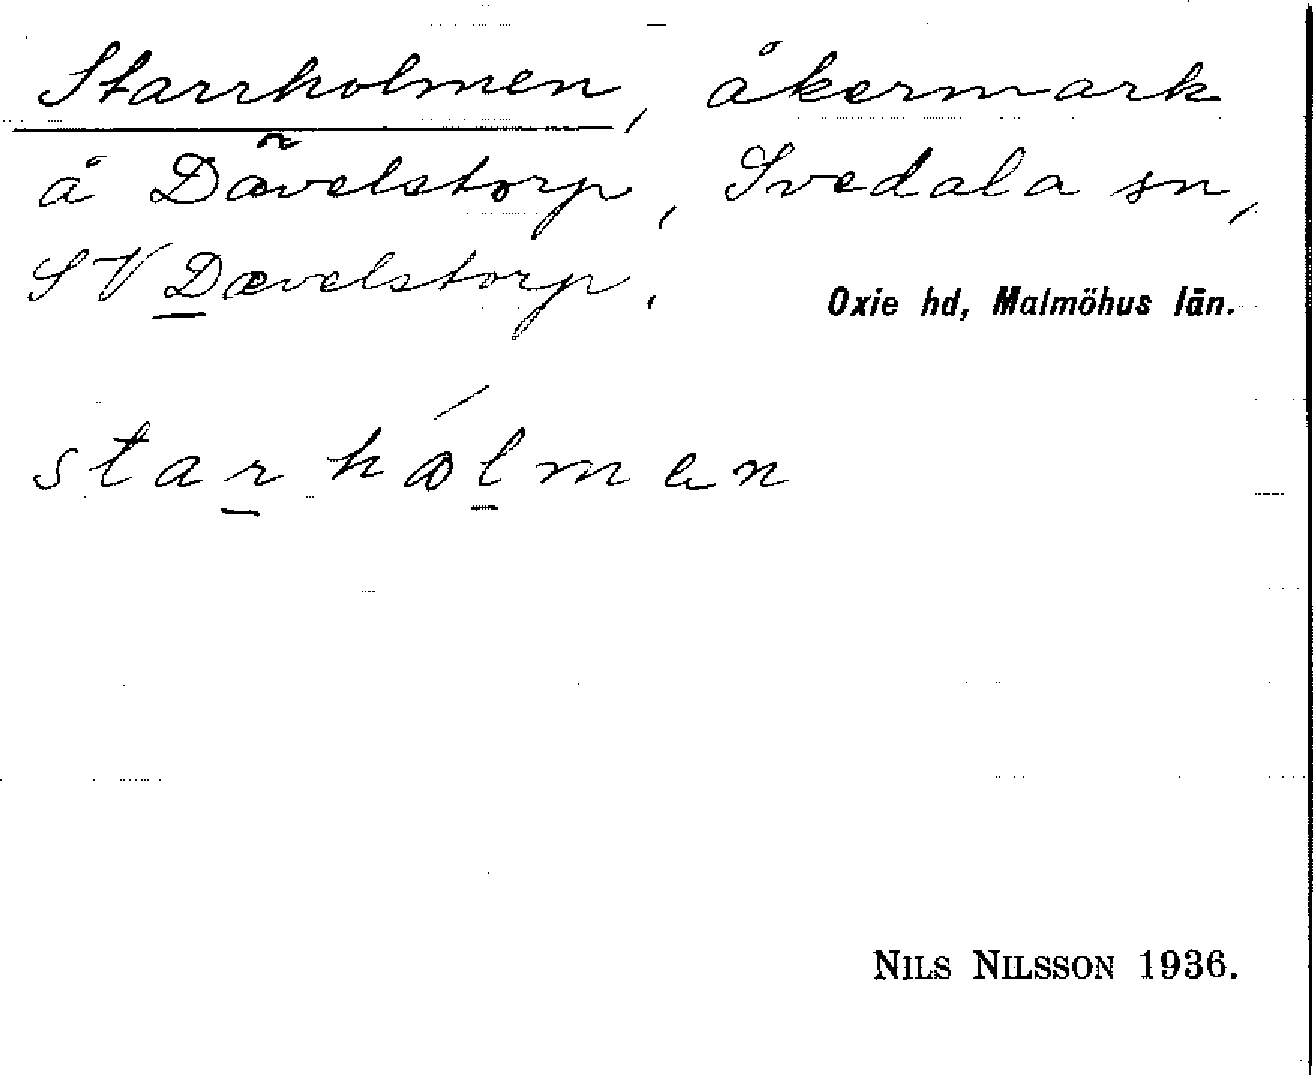 Starrholmen, åkermark
å Dävelstorp, Svedala sn,
SV Dævelstorp.
Oxie hd, Malmöhus län.
starhólmen
NILS NILSSON 1936.